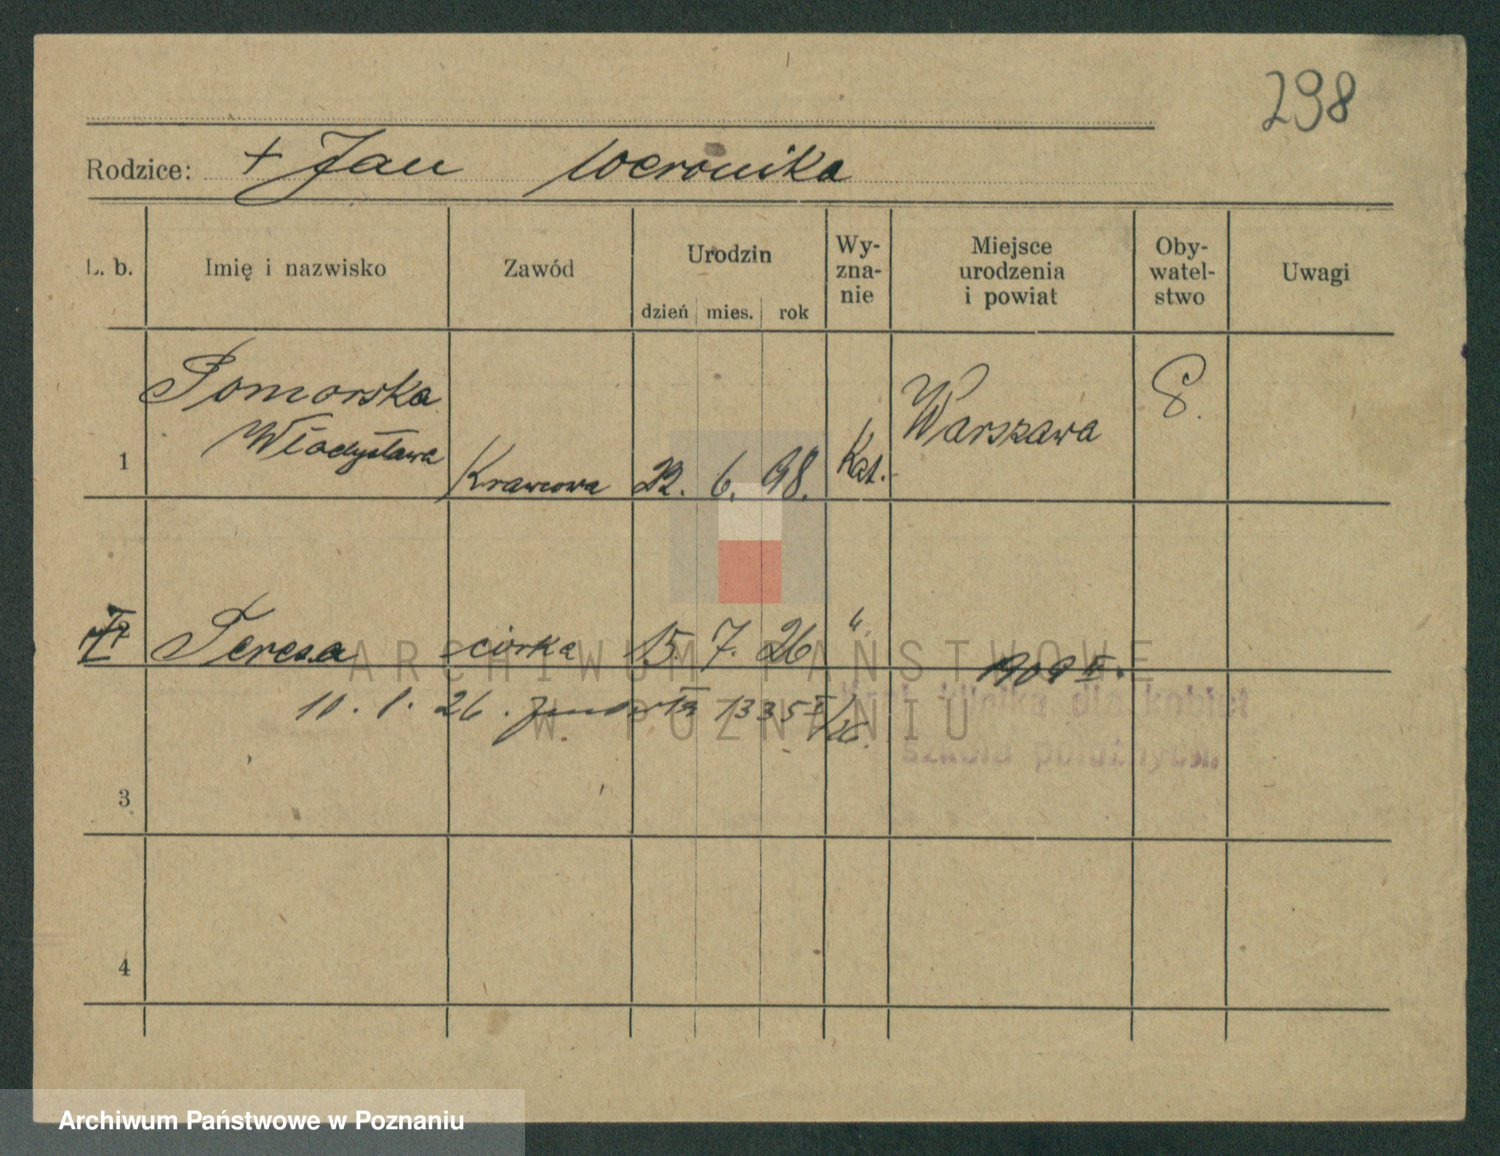 298
Rodzice: + Jan Weronika
L. b. Imię i nazwisko Zawód Urodzin dzień mies. rok Wy-zna-nie Miejsce urodzenia i powiat Oby-watel-stwo Uwagi
Pomorska
Władysława
1 Krawcowa 22. 6. 98. Kat. Warszawa P.
Teresa córka 15. 7. 26 "
1909
11. 1. 26. 1335
klinika dla kobiet
szkoła położnych.
3
4
ARCHIWUM PAŃSTWOWE
W POZNANIU
Archiwum Państwowe w Poznaniu